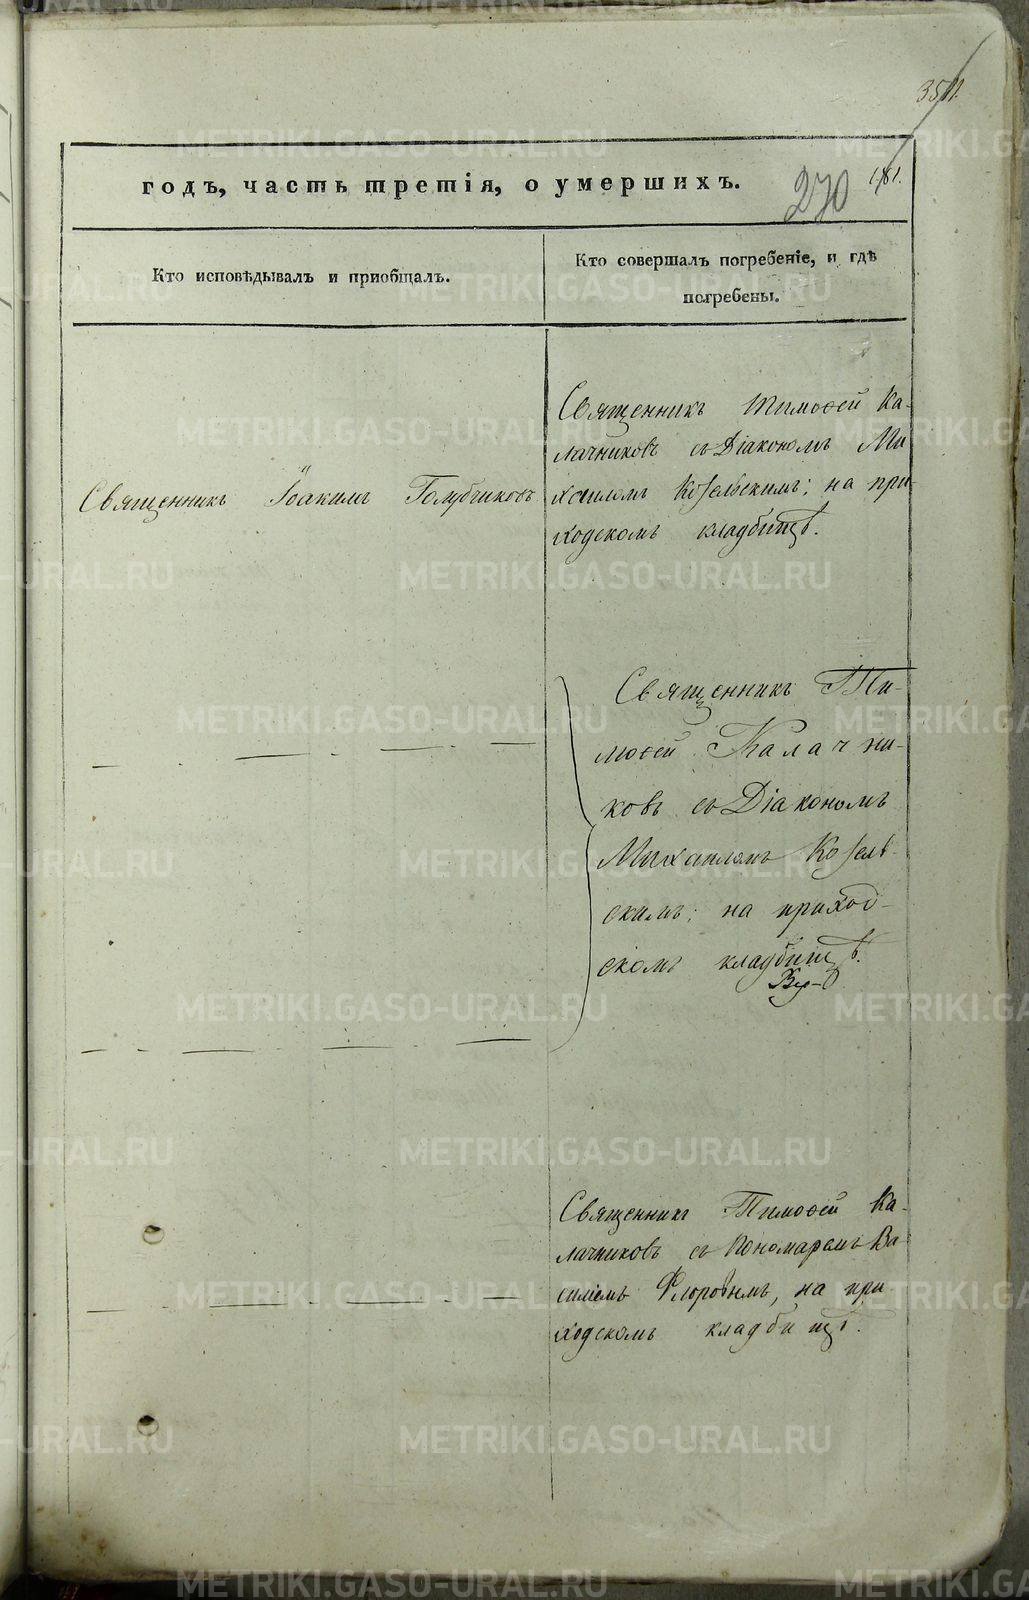 годъ, часть третія, о умершихъ.
270
Кто исповѣдывалъ и пріобщалъ.
Кто совершалъ погребеніе, и гдѣ
погребены.
Священникъ Тимоѳей Ка-
лачниковъ съ Діакономъ Ми
хаиломъ Козельскимъ; на при
ходскомъ кладбищѣ.
Священникъ Іоакимъ Голубчиковъ
Священникъ Ти-
моѳей Калачни-
ковъ съ Діакономъ
Михаиломъ Козель-
скимъ; на приход-
скомъ кладбищѣ.
Священникъ Тимоѳей Ка-
лачниковъ съ Пономаремъ Ва
силіемъ Флоровымъ, на при
ходскомъ кладбищѣ.
METRIKI.GASO-URAL.RU